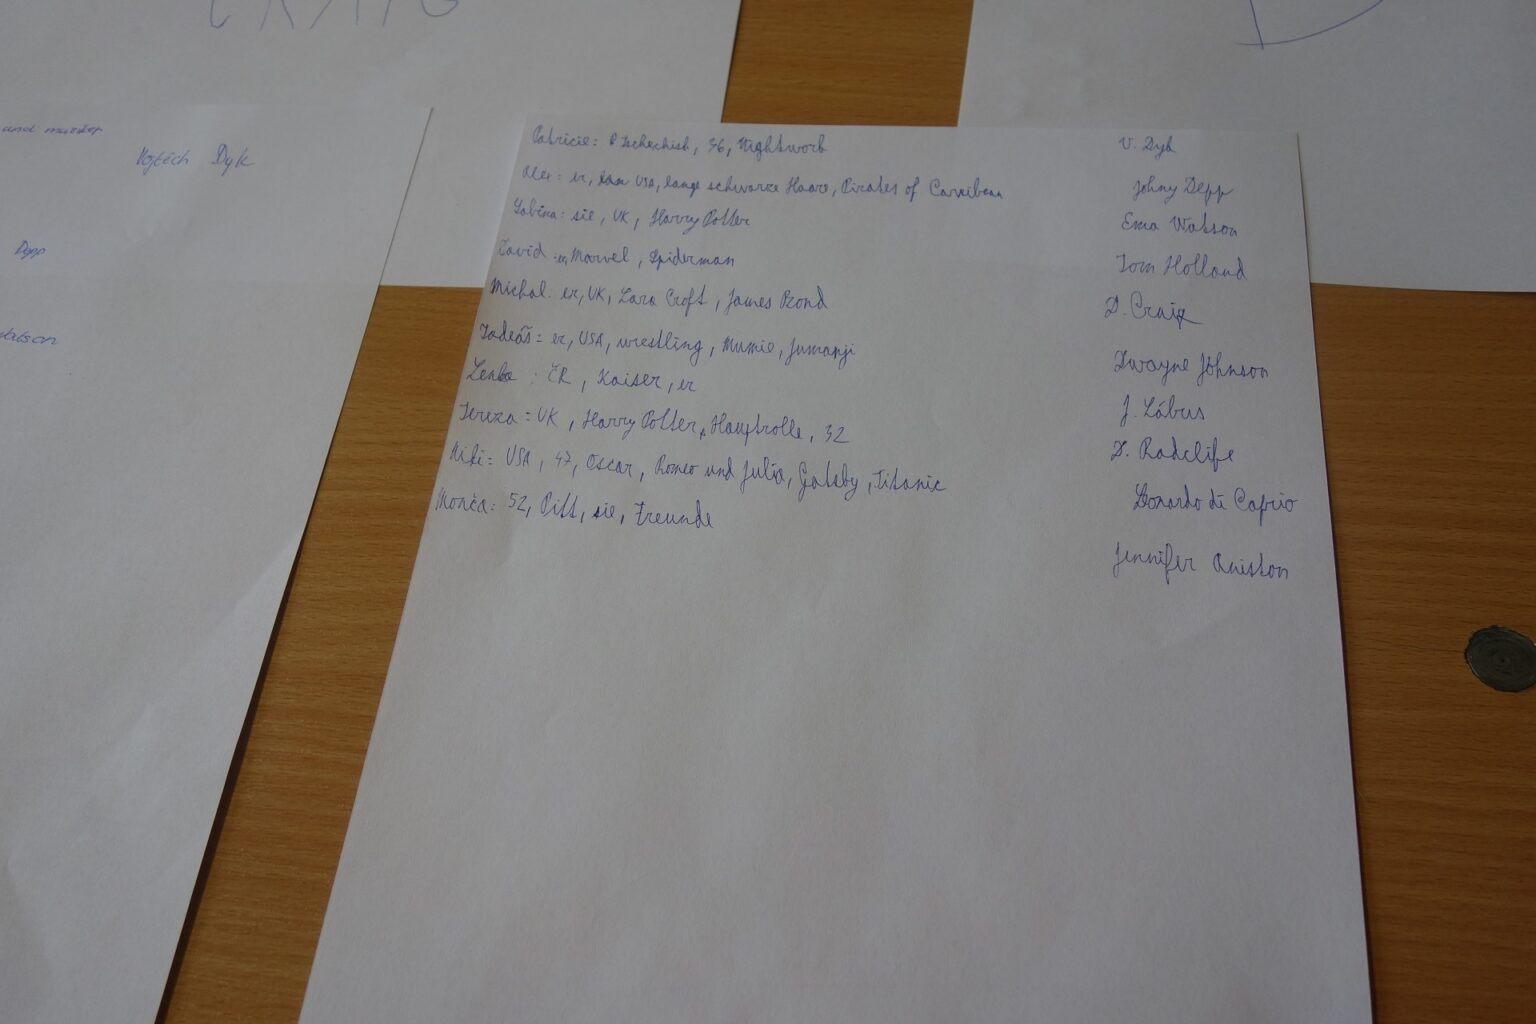 CRAIG
und
Vojtěch Dyk
Depp
Watson
Patricie: Tschechisch, 36, Nightwork V. Dyk
Alex: er, USA, lange schwarze Haare, Pirates of Carribean Johny Depp
Sabina: sie, UK, Harry Potter Ema Watson
David: er, Marvel, Spiderman Tom Holland
Michal: er, UK, Lara Croft, James Bond D. Craig
Tadeáš: er, USA, wrestling, Mumie, Jumanji Dwayne Johnson
Lenka: ČR, Kaiser, er J. Lábus
Tereza: UK, Harry Potter, Hauptrolle, 32 D. Radclife
Niki: USA, 47, Oscar, Romeo und Julia, Gatsby, Titanic Leonardo di Caprio
Monča: 52, Pitt, sie, Freunde Jennifer Aniston